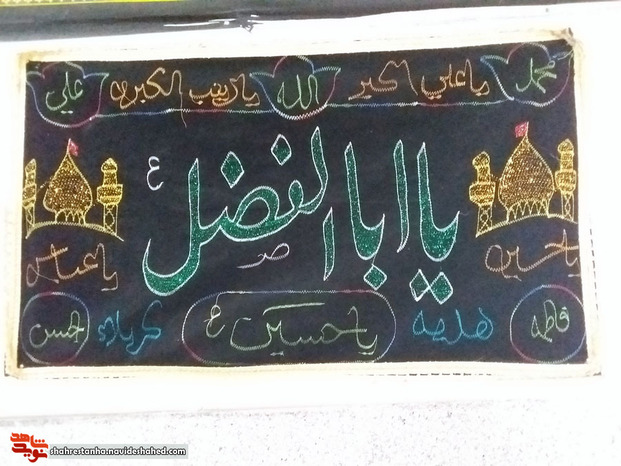 محمد یا علی اکبر الله یا زینب الکبری علی
یا اباالفضل ع
یا حسین یا عباس
فاطمه هدیه یا حسین ع کربلاء حسن
شاهد نوید shahrestanha.navideshahed.com